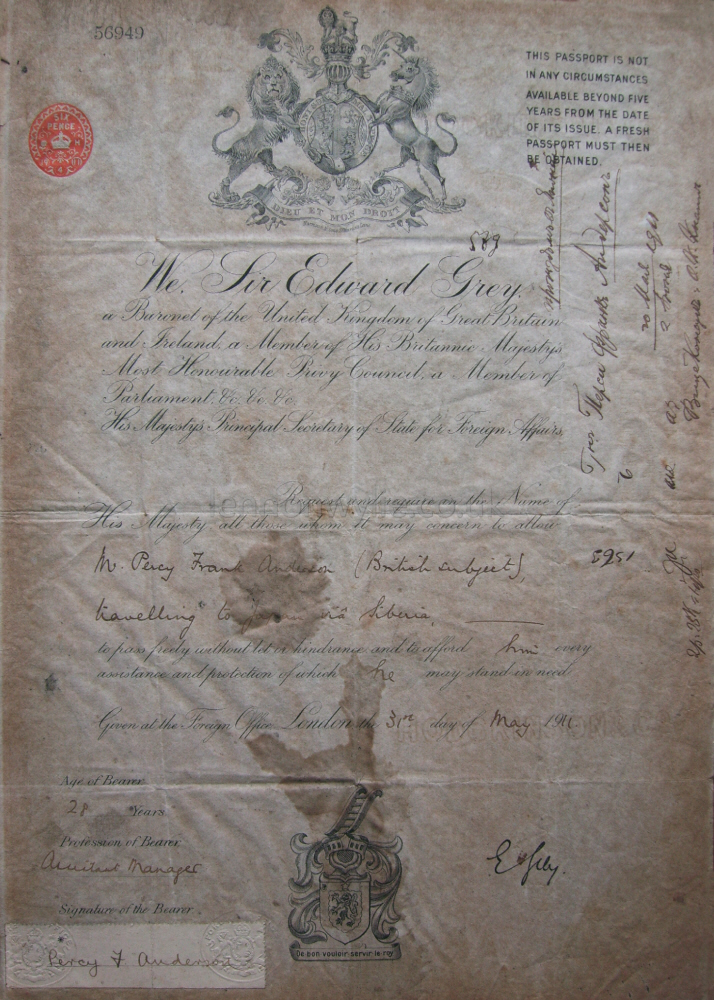 56949
SIX
PENCE
DIEU ET MON DROIT
THIS PASSPORT IS NOT
IN ANY CIRCUMSTANCES
AVAILABLE BEYOND FIVE
YEARS FROM THE DATE
OF ITS ISSUE. A FRESH
PASSPORT MUST THEN
BE OBTAINED.
589
We, Sir Edward Grey,
a Baronet of the United Kingdom of Great Britain
and Ireland, a Member of His Britannic Majesty's
Most Honourable Privy Council, a Member of
Parliament, &c. &c. &c.
His Majesty's Principal Secretary of State for Foreign Affairs,
Request and require in the Name of
His Majesty all those whom it may concern to allow
Mr. Percy Frank Anderson (British subject),
5951
travelling to Japan viâ Siberia,
to pass freely without let or hindrance and to afford him every
assistance and protection of which he may stand in need
Given at the Foreign Office London, the 31st day of May 1911.
Age of Bearer
28 Years
Profession of Bearer
Assistant Manager
E Grey.
Signature of the Bearer
Percy F Anderson
De bon vouloir servir le roy